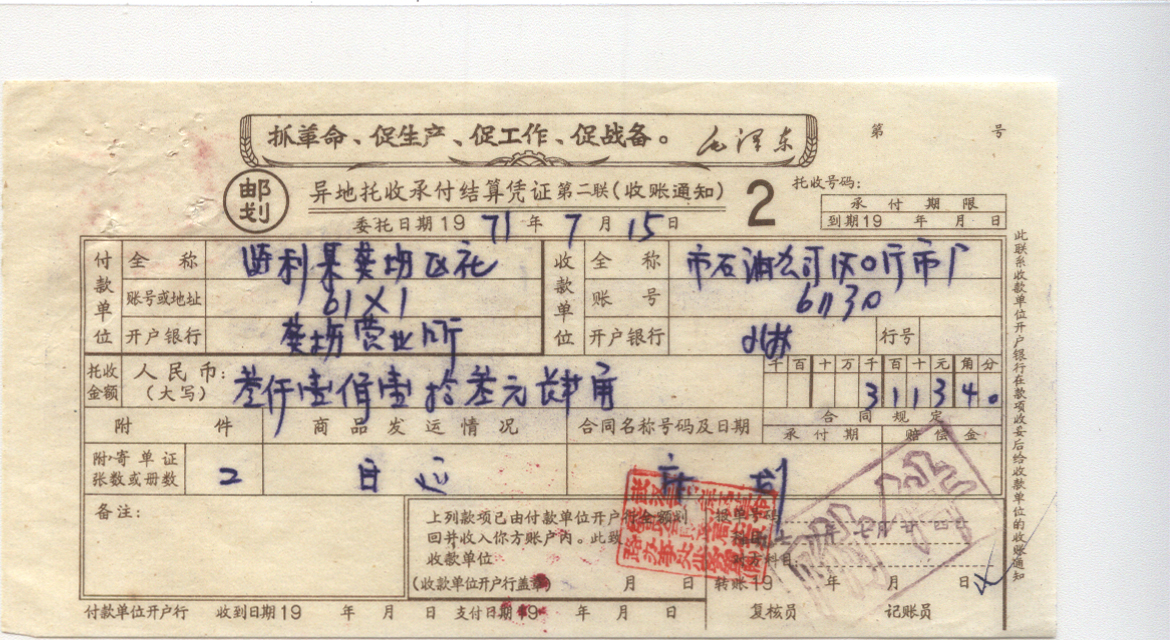 抓革命、促生产、促工作、促战备。 毛泽东
第 号
邮划
异地托收承付结算凭证 第二联(收账通知) 2
托收号码:
承付期限
到期19 年 月 日
委托日期19 71 年 7 月 15 日
付款单位 全称
收款单位 全称 市石油公司
账号或地址 61X1
账号 61130
开户银行 营业所
开户银行 行号
托收金额 人民币:(大写) 叁仟壹佰壹拾叁元肆角
千百十万千百十元角分
3 1 1 3 4 0
附件 商品发运情况 合同名称号码及日期
合同规定
承付期 赔偿金
附寄单证张数或册数 2 自运
备注:
上列款项已由付款单位开户行全额划
回并收入你方账户内。此致
收款单位
(收款单位开户行盖章) 月 日
转账19 年 月 日
付款单位开户行 收到日期19 年 月 日 支付日期19 年 月 日 复核员 记账员
此联系收款单位开户银行在款项收妥后给收款单位的收账通知